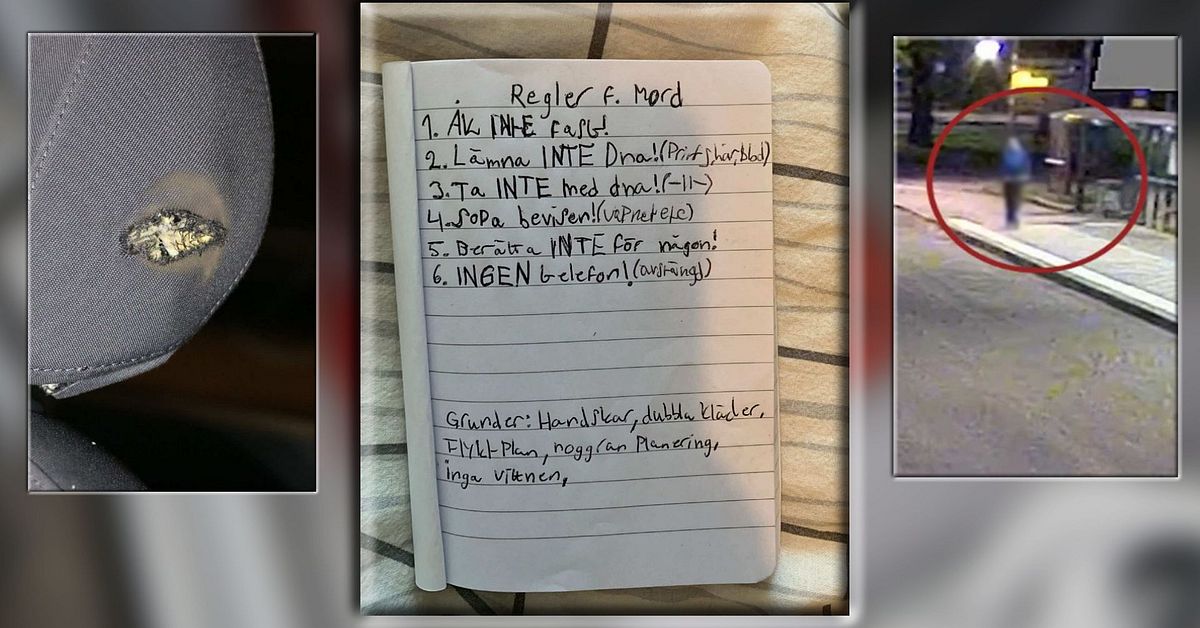 Regler f. Mord
1. Åk INTE fast!
2. Lämna INTE Dna!(Print,hår,blod)
3. Ta INTE med dna!(-11-)
4. Sopa bevisen!(vapnet etc)
5. Berätta INTE för någon!
6. INGEN telefon!(avstängd)
Grunder: Handskar, dubbla kläder,
Flykt-Plan, noggran Planering,
inga vittnen,